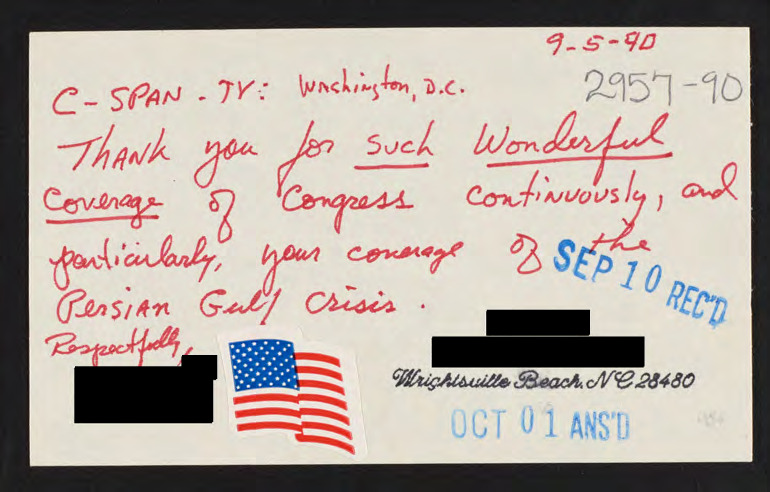 9-5-90
2957-90
C-SPAN-TV: Washington, D.C.
Thank you for such Wonderful
Coverage of Congress continuously, and
particularly, your coverage of the
Persian Gulf Crisis.
SEP 10 REC'D
Respectfully,
Wrightsville Beach, NC 28480
OCT 01 ANS'D